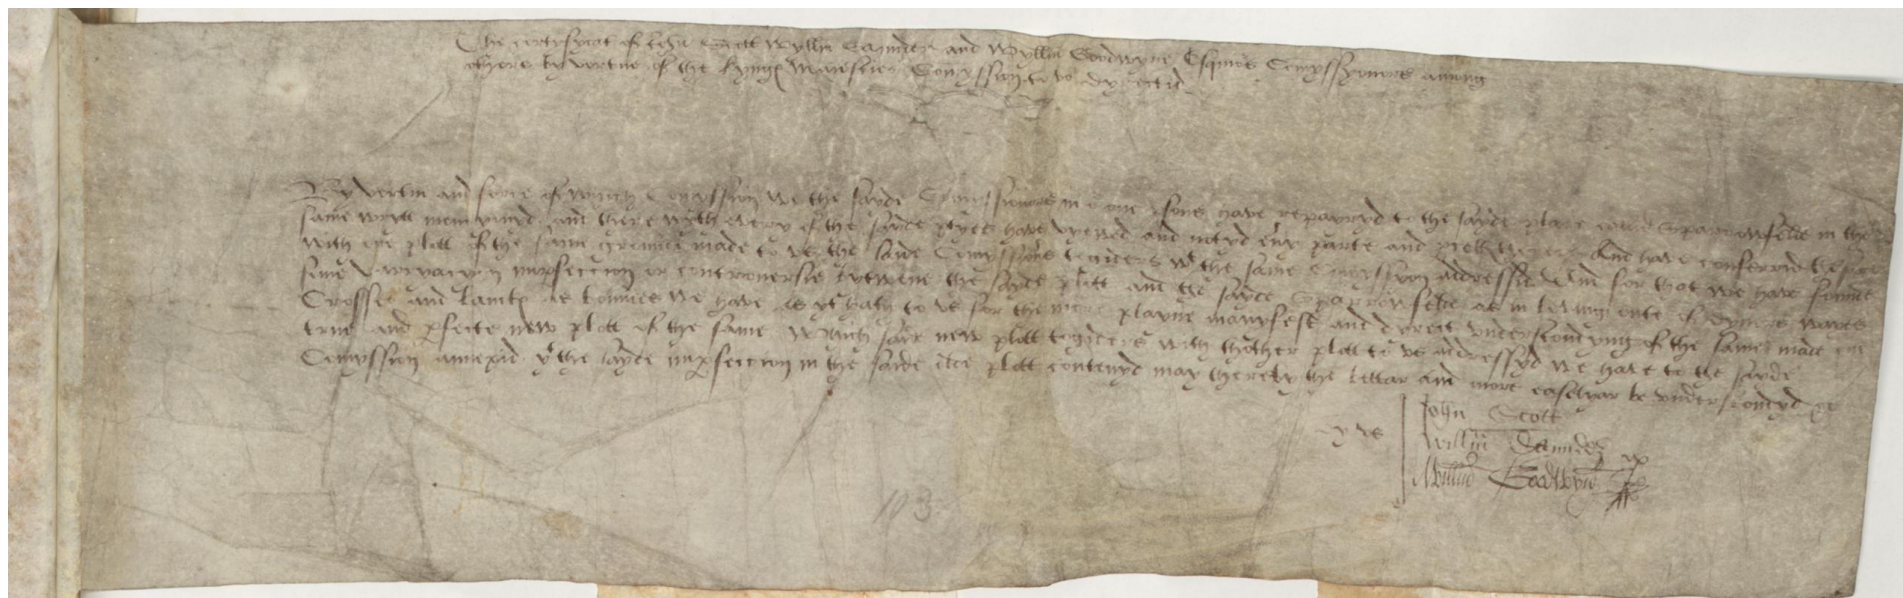 The certyfycat of John Scott Wyllm Saunder and Wyllm Goodwyne Esquiers Comyssyoners among
others by vertue of the kyngs Maiesties Comyssion to us dyrectid
By vertu and force of which Comyssion we the sayde Comyssioners in o{ur} one psons have repayryd to the sayde place callid Sparrowfelde in the
same wrytt mencionyd and there wyth every of the sayde ptyes have vyewed and notyd eny parte and And have conferrid the same
with the plott of the same grounde made to us the saide Comyssiors togiders wt the same Comyssyon addressid And for that we have founde
some varyacyn impfeccion or controversie bytwene the sayde plott and the sayde Sparrowfelde as in leving oute of dyvers wayes
Crosses and lands as bondes we have as yt hath to us for the more playne manyfest and dyrect understondyng of the same made one
true and pfecte new plott of the same Which saide new plott togiders with thother plott to us addressyd we have to the sayde
Comyssion annexid yt the sayde impfeccion in the saide olde plott contenyd may thereby the bettar and more easelyar be understondyd
By us
John Scott
Willm Saunder
Wyllm Goodwyne
193